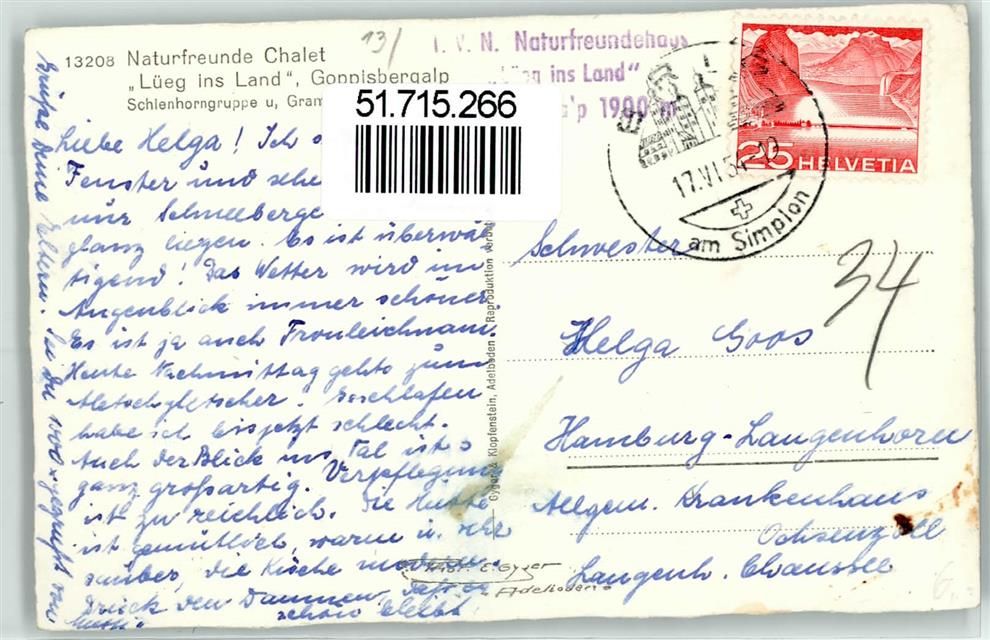 13208 Naturfreunde Chalet
„Lüeg ins Land“, Goppisbergalp
Schienhorngruppe u, Gram
13/
T. V. N. Naturfreundehaus
„Lüeg ins Land“
'p 1900 m
51.715.266
25 HELVETIA
17.VI.5
am Simplon
Liebe Helga! Ich
Fenster und sehe
nur Schneeberge
glanz liegen. Es ist überwäl
tigend! Das Wetter wird im
Augenblick immer schöner.
Es ist ja auch Fronleichnam.
Heute Nachmittag gehts zum
Aletschgletscher. Geschlafen
habe ich bis jetzt schlecht.
Auch der Blick ins Tal ist
ganz großartig. Verpflegung
ist zu reichlich. Die Hütte
ist gemütlich, warm u. sehr
sauber, die Küche modern.
Drück den Daumen, daß es
schön bleibt
Grüße Deine Eltern. Sei Du 1000 x gegrüßt von
Schwester
Helga Goos
Hamburg-Langenhorn
Allgem. Krankenhaus
Ochsenzoll
Langenh. Chaussee
34
Gyger & Klopfenstein, Adelboden - Reproduktion verboten
Phot. E. Gyger
Adelboden
6.-